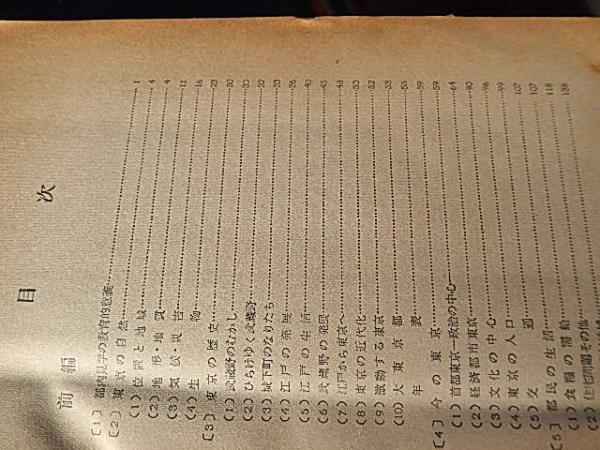 目次
前編
〔1〕都内見学の教育的意義……1
〔2〕東京の自然……4
(1)位置と地域……4
(2)地形・地質……4
(3)気候災害……11
(4)生物……16
〔3〕東京の歴史……23
(1)武蔵野のむかし……30
(2)ひらけゆく武蔵野……30
(3)城下町のなりたち……32
(4)江戸の発展……33
(5)江戸の生活……36
(6)武蔵野の発展……40
(7)江戸から東京へ……45
(8)東京の近代化……48
(9)激動する東京……50
(10)大東京都……52
年表……55
〔4〕今の東京……59
(1)首都東京―政治の中心―……59
(2)経済都市東京……64
(3)文化の中心……90
(4)東京の人口……96
(5)交通……99
〔5〕都民の生活……107
(1)食糧の需給……107
(2)住宅問題その他……118
138